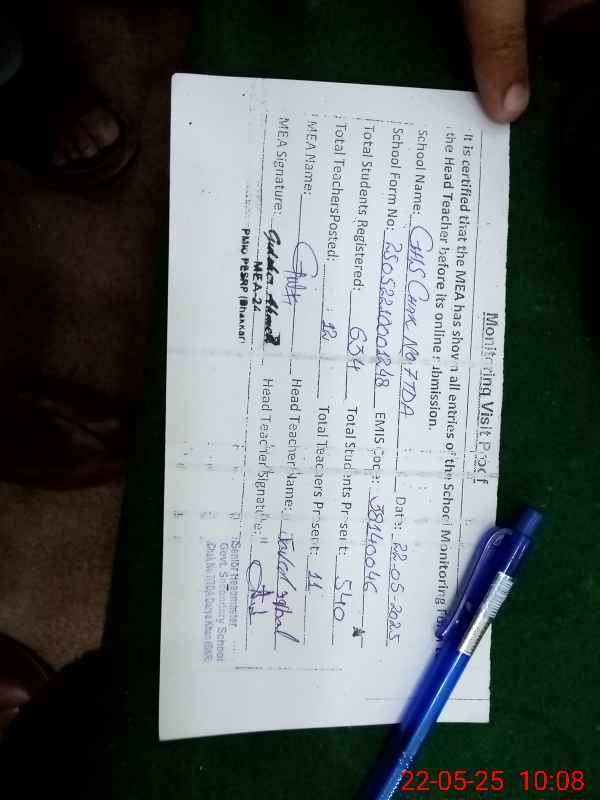 Monitoring Visit Proof
It is certified that the MEA has shown all entries of the School Monitoring Form
the Head Teacher before its online submission.
School Name: GHS Chak No 7 TDA Date: 22-05-2025
School Form No: 25052210001248 EMIS Code: 38140046
Total Students Registered: 634 Total Students Present: 540
Total TeachersPosted: 12 Total Teachers Present: 11
MEA Name: Head Teacher Name: Javed Iqbal
MEA Signature: Ahmed Head Teacher Signature:
MEA-24
PMIU PESRP (Bhakkar)
Senior Headmaster
Govt. Secondary School
Chak No. 7/TDA Darya Khan (BKR)
22-05-25 10:08